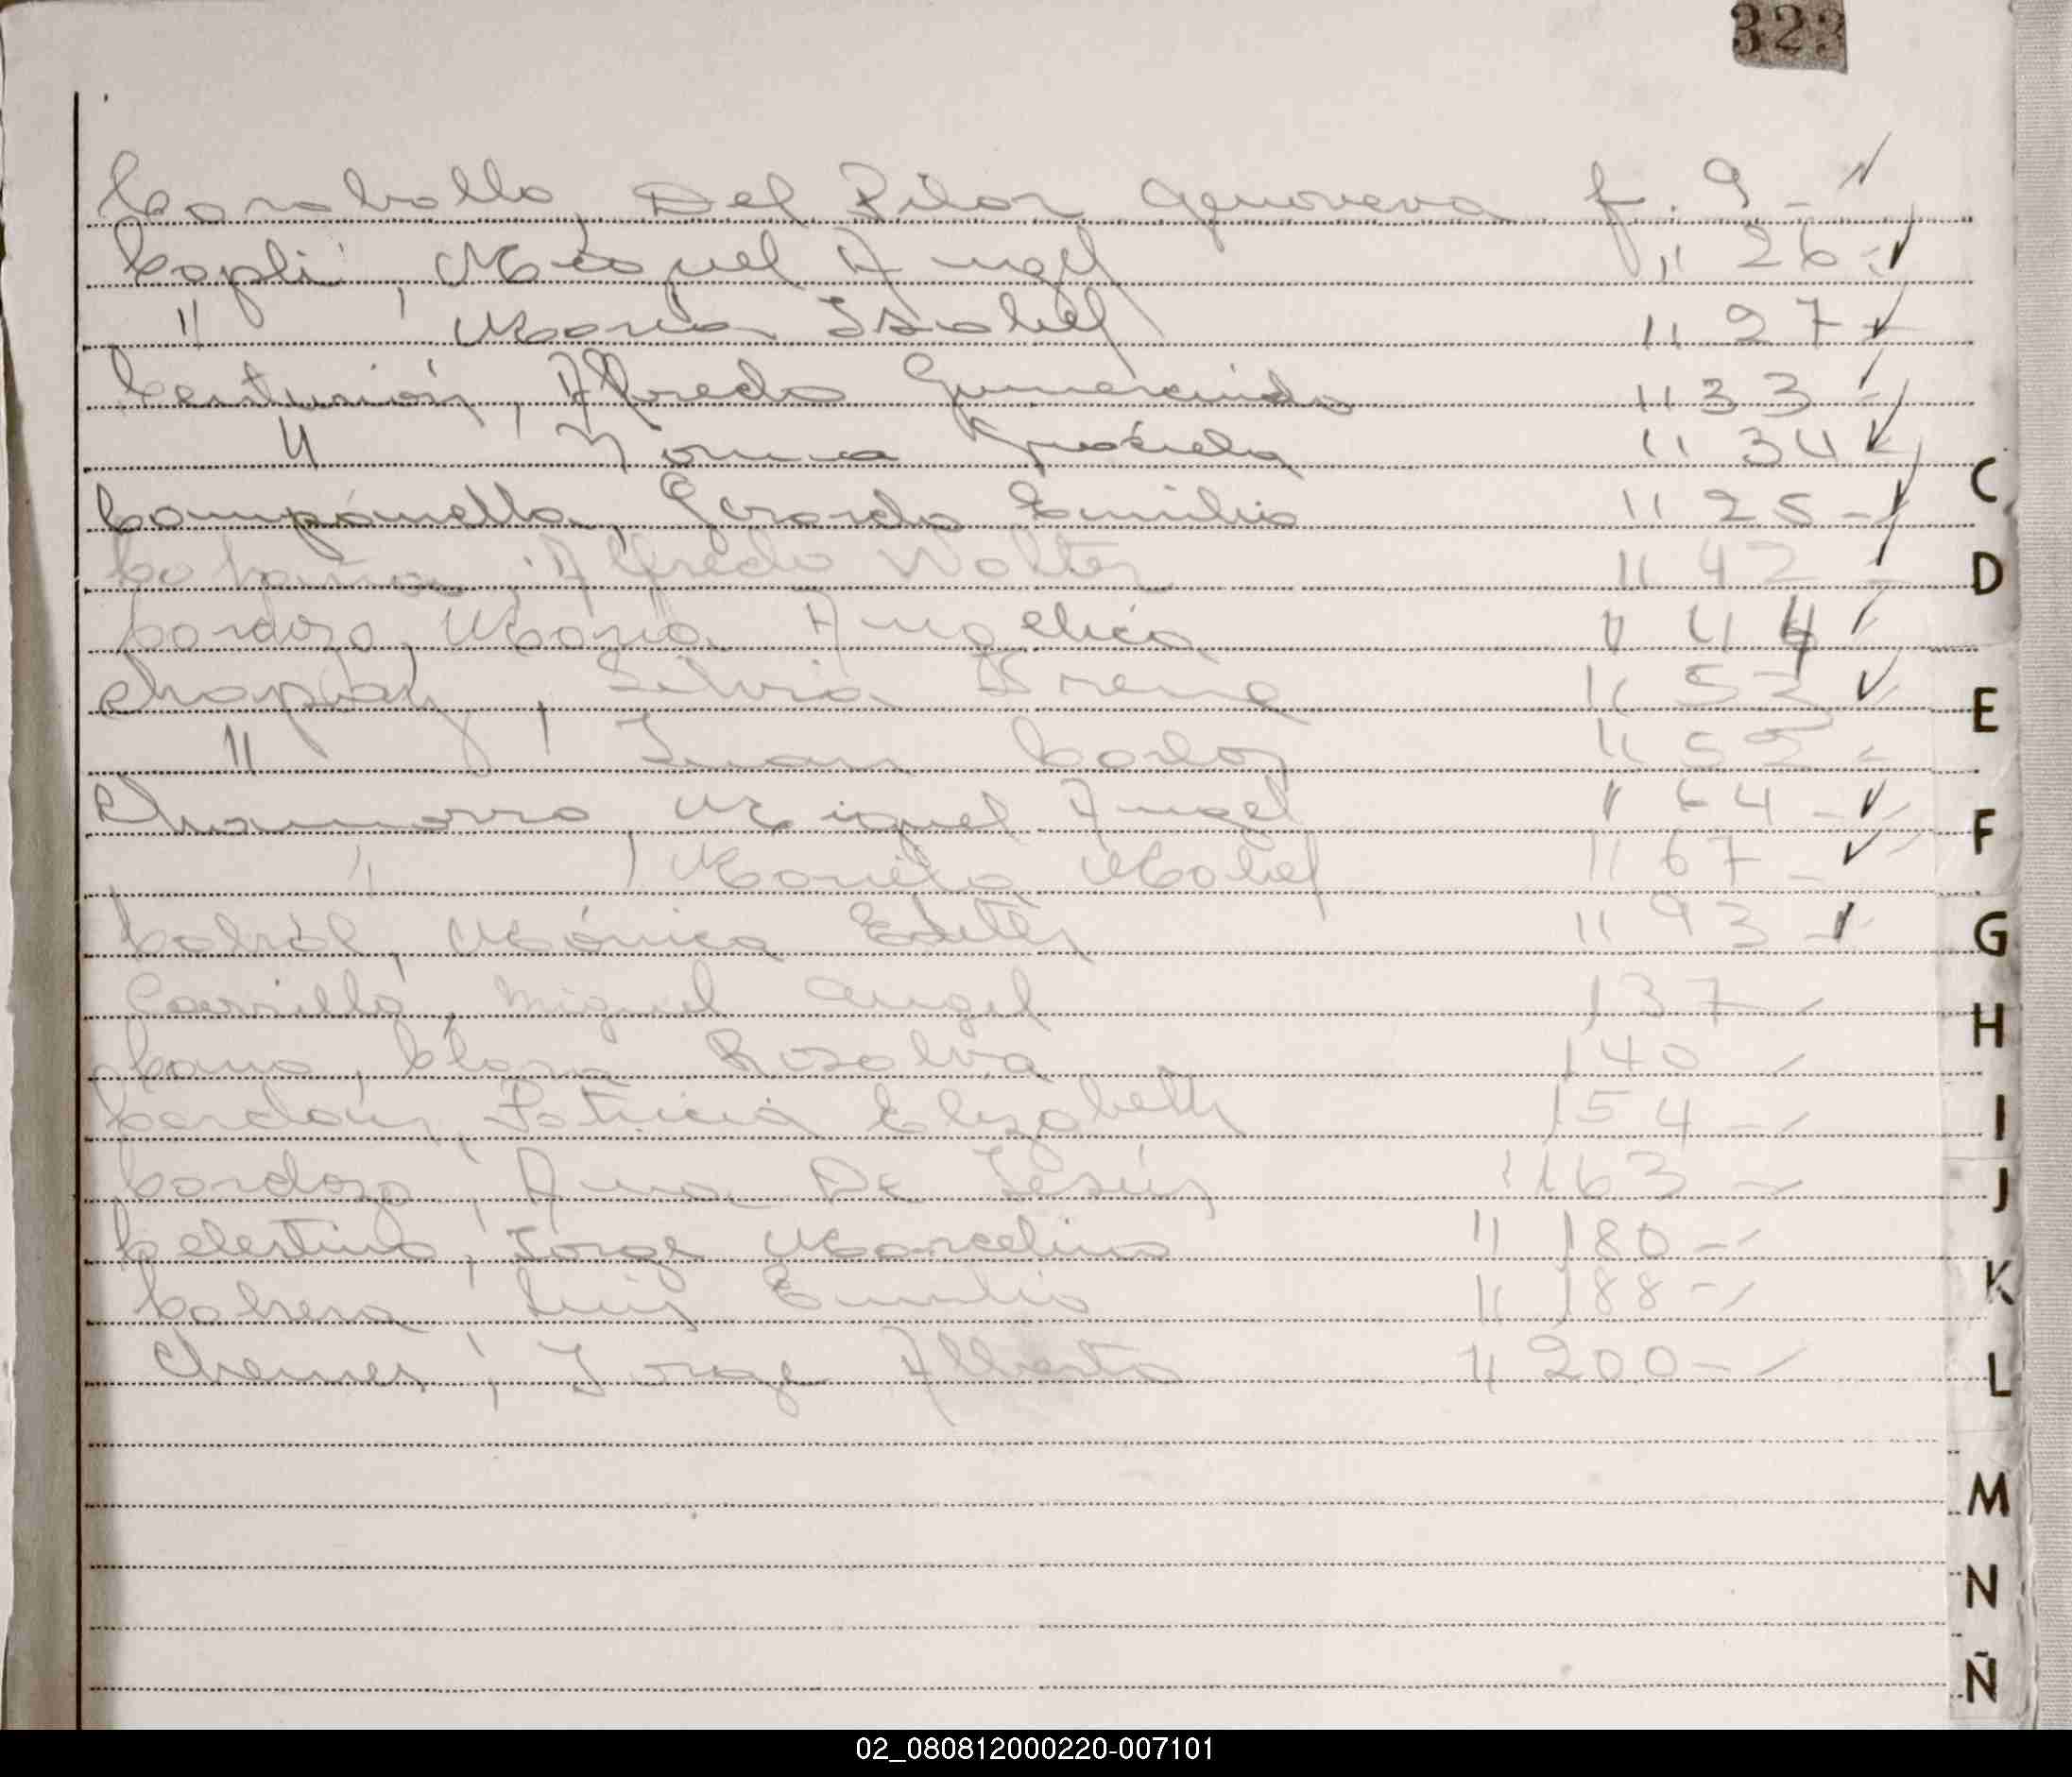 323
Caraballo, Del Pilar Genoveva f. 9 -
Capli, Miguel Angel " 26 -
" , María Isabel " 27 -
Centurión, Alfredo Gumercindo " 33 -
" Norma Graciela " 34 -
Campanella, Gerardo Emilio " 25 -
C
Alfredo Walter " 42 -
D
Cardozo, María Angélica " 44
Chapay, Silvia Irene " 53
E
" , Juan Carlos " 52 -
Chamorro, Miguel Angel " 64 -
F
" , Mariela Mabel " 67 -
Cabral, Mónica Edith " 93 -
G
Carrillo, Miguel Angel 137 -
H
Cano, Clara Rosalva 140 -
Patricia Elizabeth 154 -
I
Cardozo, Ana De Jesús " 163 -
J
Celestino, Jorge Marcelino " 180 -
K
Cabrera, Luis Emilio " 188 -
Chemes, Jorge Alberto " 200 -
L
M
N
Ñ
02_080812000220-007101